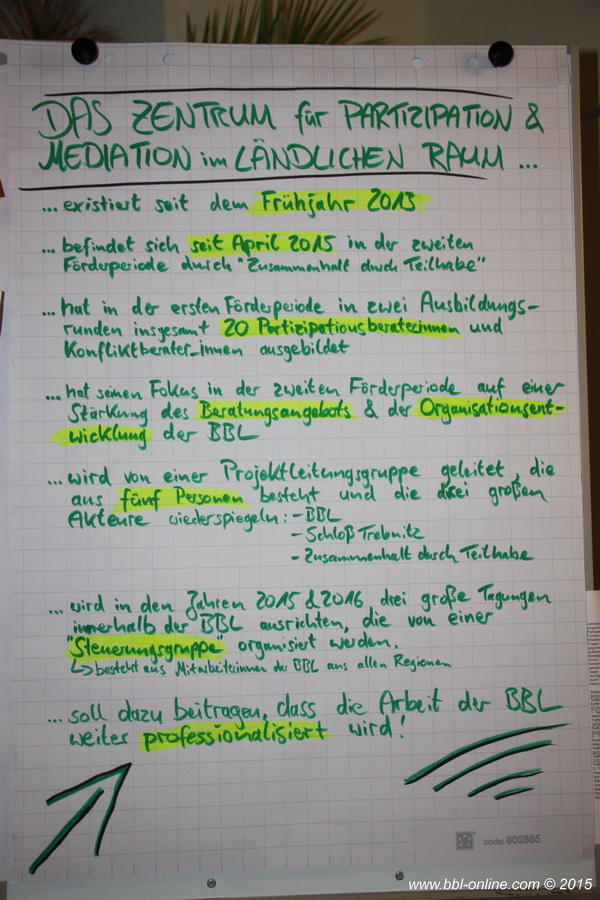 DAS ZENTRUM für PARTIZIPATION &
MEDIATION im LÄNDLICHEN RAUM ...
... existiert seit dem Frühjahr 2013
... befindet sich seit April 2015 in der zweiten
Förderperiode durch "Zusammenhalt durch Teilhabe"
... hat in der ersten Förderperiode in zwei Ausbildungs-
runden insgesamt 20 Partizipationsberater:innen und
Konfliktberater_innen ausgebildet
... hat seinen Fokus in der zweiten Förderperiode auf einer
Stärkung des Beratungsangebots & der Organisationsent-
wicklung der BBL
... wird von einer Projektleitungsgruppe geleitet, die
aus fünf Personen besteht und die drei großen
Akteure wiederspiegeln: - BBL
- Schloß Trebnitz
- Zusammenhalt durch Teilhabe
... wird in den Jahren 2015 & 2016 drei große Tagungen
innerhalb der BBL ausrichten, die von einer
"Steuerungsgruppe" organisiert werden.
↳ besteht aus Mitarbeiter:innen der BBL aus allen Regionen
... soll dazu beitragen, dass die Arbeit der BBL
weiter professionalisiert wird!
code: 802865
www.bbl-online.com © 2015